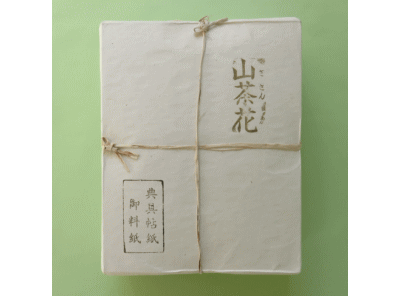 山茶花
典具帖紙
御料紙